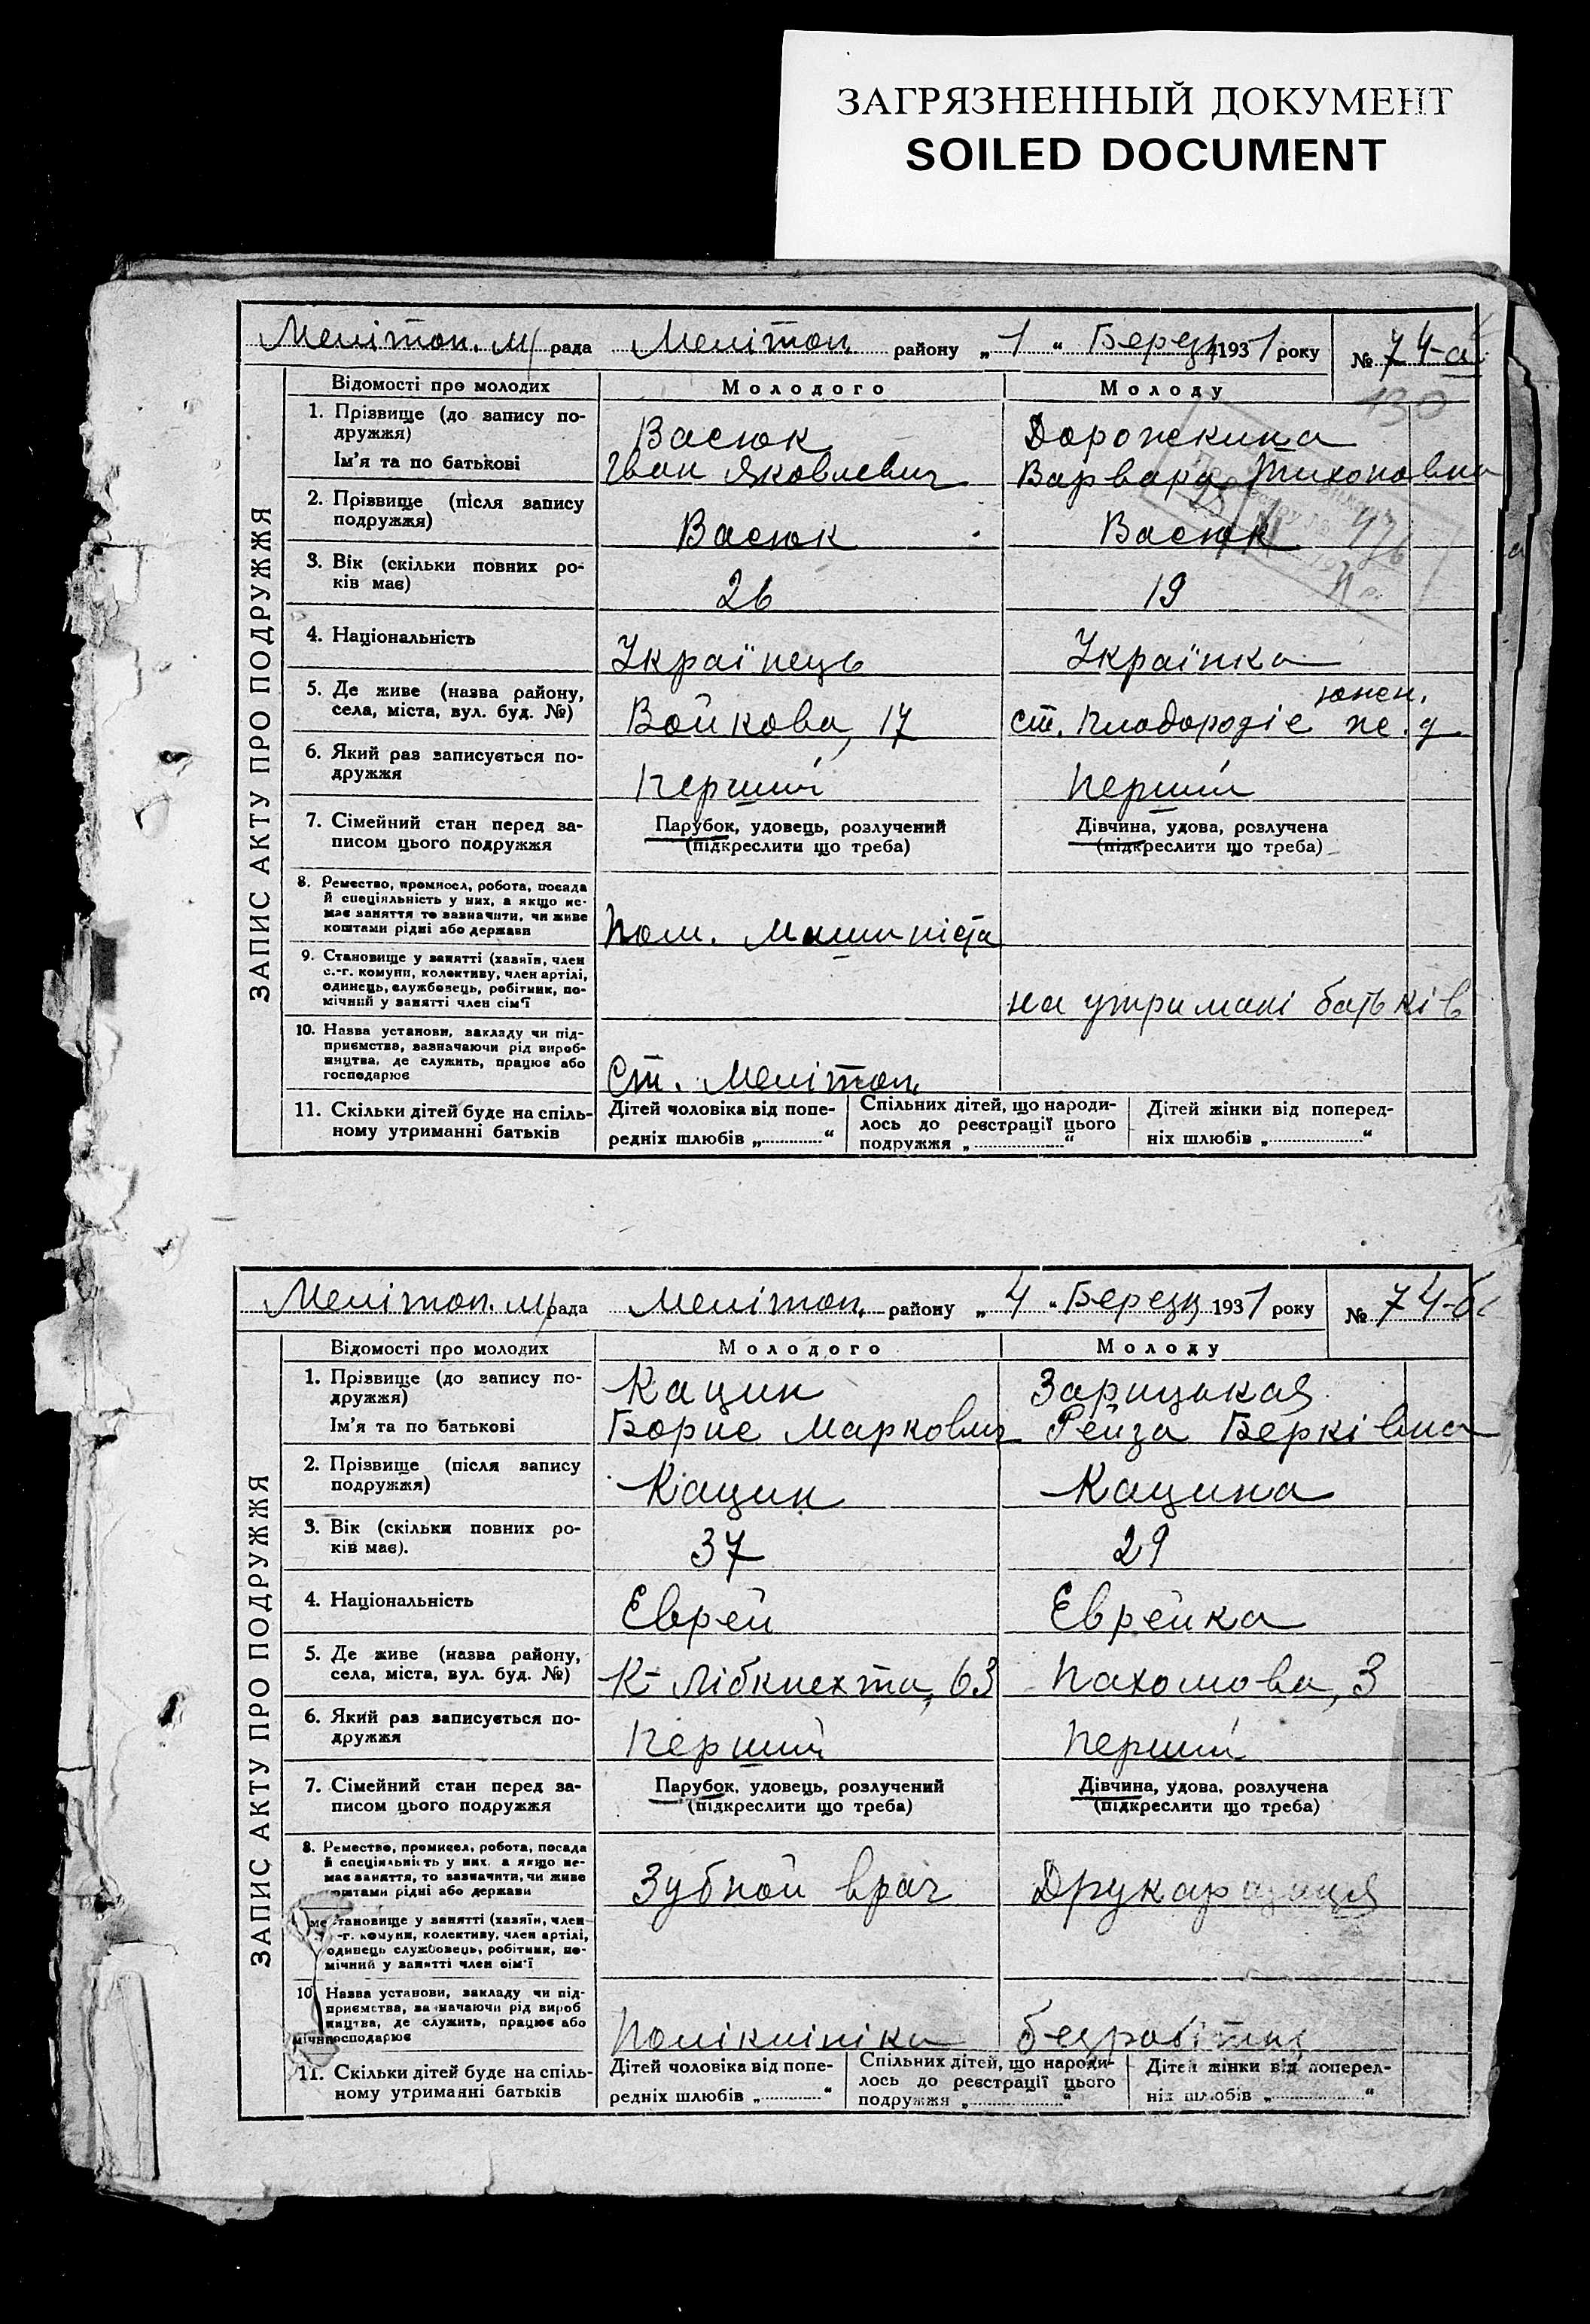 ЗАГРЯЗНЕННЫЙ ДОКУМЕНТ
SOILED DOCUMENT
Мелітоп. м/рада Мелітоп. району „1“ Березн 1931 року № 74-а
130
ЗАПИС АКТУ ПРО ПОДРУЖЖЯ
Відомості про молодих
Молодого
Молоду
1. Прізвище (до запису по-
дружжя)
Ім’я та по батькові
Васюк
Іван Яковлевич
Дорожкина
Варвара Тихоновна
2. Прізвище (після запису
подружжя)
Васюк
Васюк
3. Вік (скільки повних ро-
ків має)
26
19
4. Національність
Українець
Українка
5. Де живе (назва району,
села, міста, вул. буд. №)
Войкова, 17
ст. Плодородіє же.д
6. Який раз записується по-
дружжя
Перший
Перший
7. Сімейний стан перед за-
писом цього подружжя
Парубок, удовець, розлучений
(підкреслити що треба)
Дівчина, удова, розлучена
(підкреслити що треба)
8. Ремество, промисел, робота, посада
й спеціяльність у них, а якщо не-
має заняття то зазначити, чи живе
коштами рідні або держави
Пом. Машиніста
9. Становище у занятті (хазяїн, член
с.-г. комуни, колективу, член артілі,
одинець, службовець, робітник, по-
мічний у занятті член сім’ї
на утримані батьків
10. Назва установи, закладу чи під-
приємства, зазначаючи рід вироб-
ництва, де служить, працює або
господарює
Ст. Мелітоп.
11. Скільки дітей буде на спіль-
ному утриманні батьків
Дітей чоловіка від попе-
редніх шлюбів „ “
Спільних дітей, що народи-
лось до реєстрації цього
подружжя „ “
Дітей жінки від поперед-
ніх шлюбів „ “
Мелітоп. м/рада Мелітоп. району „4“ Березн 1931 року № 74-б
ЗАПИС АКТУ ПРО ПОДРУЖЖЯ
Відомості про молодих
Молодого
Молоду
1. Прізвище (до запису по-
дружжя)
Ім’я та по батькові
Кацин
Борис Маркович
Зарицькая
Рейза Берківна
2. Прізвище (після запису
подружжя)
Кацин
Кацина
3. Вік (скільки повних ро-
ків має).
37
29
4. Національність
Еврей
Еврейка
5. Де живе (назва району,
села, міста, вул. буд. №)
К-Лібкнехта, 63
Пахомова, 3
6. Який раз записується по-
дружжя
Перший
Перший
7. Сімейний стан перед за-
писом цього подружжя
Парубок, удовець, розлучений
(підкреслити що треба)
Дівчина, удова, розлучена
(підкреслити що треба)
8. Ремество, промисел, робота, посада
й спеціяльність у них, а якщо не-
має заняття, то зазначити, чи живе
коштами рідні або держави
Зубной врач
становище у занятті (хазяїн, член
-г. комуни, колективу, член артілі,
одинець службовець, робітник, по-
мічний у занятті член сім’ї
10 Назва установи, закладу чи під-
приємства, зазначаючи рід вироб
ництва, де служить, працює або
господарює
Поліклініка
безробітня
11. Скільки дітей буде на спіль-
ному утриманні батьків
Дітей чоловіка від попе-
редніх шлюбів „ “
Спільних дітей, що народи-
лось до реєстрації цього
подружжя „ “
Дітей жінки від поперед-
ніх шлюбів „ “